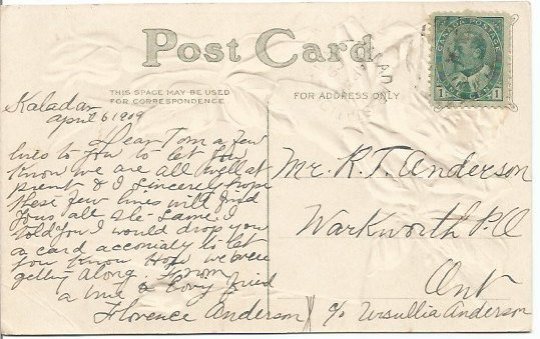 Post Card
CANADA POSTAGE
1 1
THIS SPACE MAY BE USED
FOR CORRESPONDENCE
FOR ADDRESS ONLY
Kaladar
April 6 1909
Dear Tom a few
lines to you to let you
know we are all well at
presnt & I Sincerely hope
these few lines will find
yous all the Same. I
told you I would drop you
a card acconialy to let
you know How we were
getting along. From
a true & lovy fried
Florence Anderson
Mr. R. T. Anderson
Warkworth P.O
Ont
c/o Ursullia Anderson